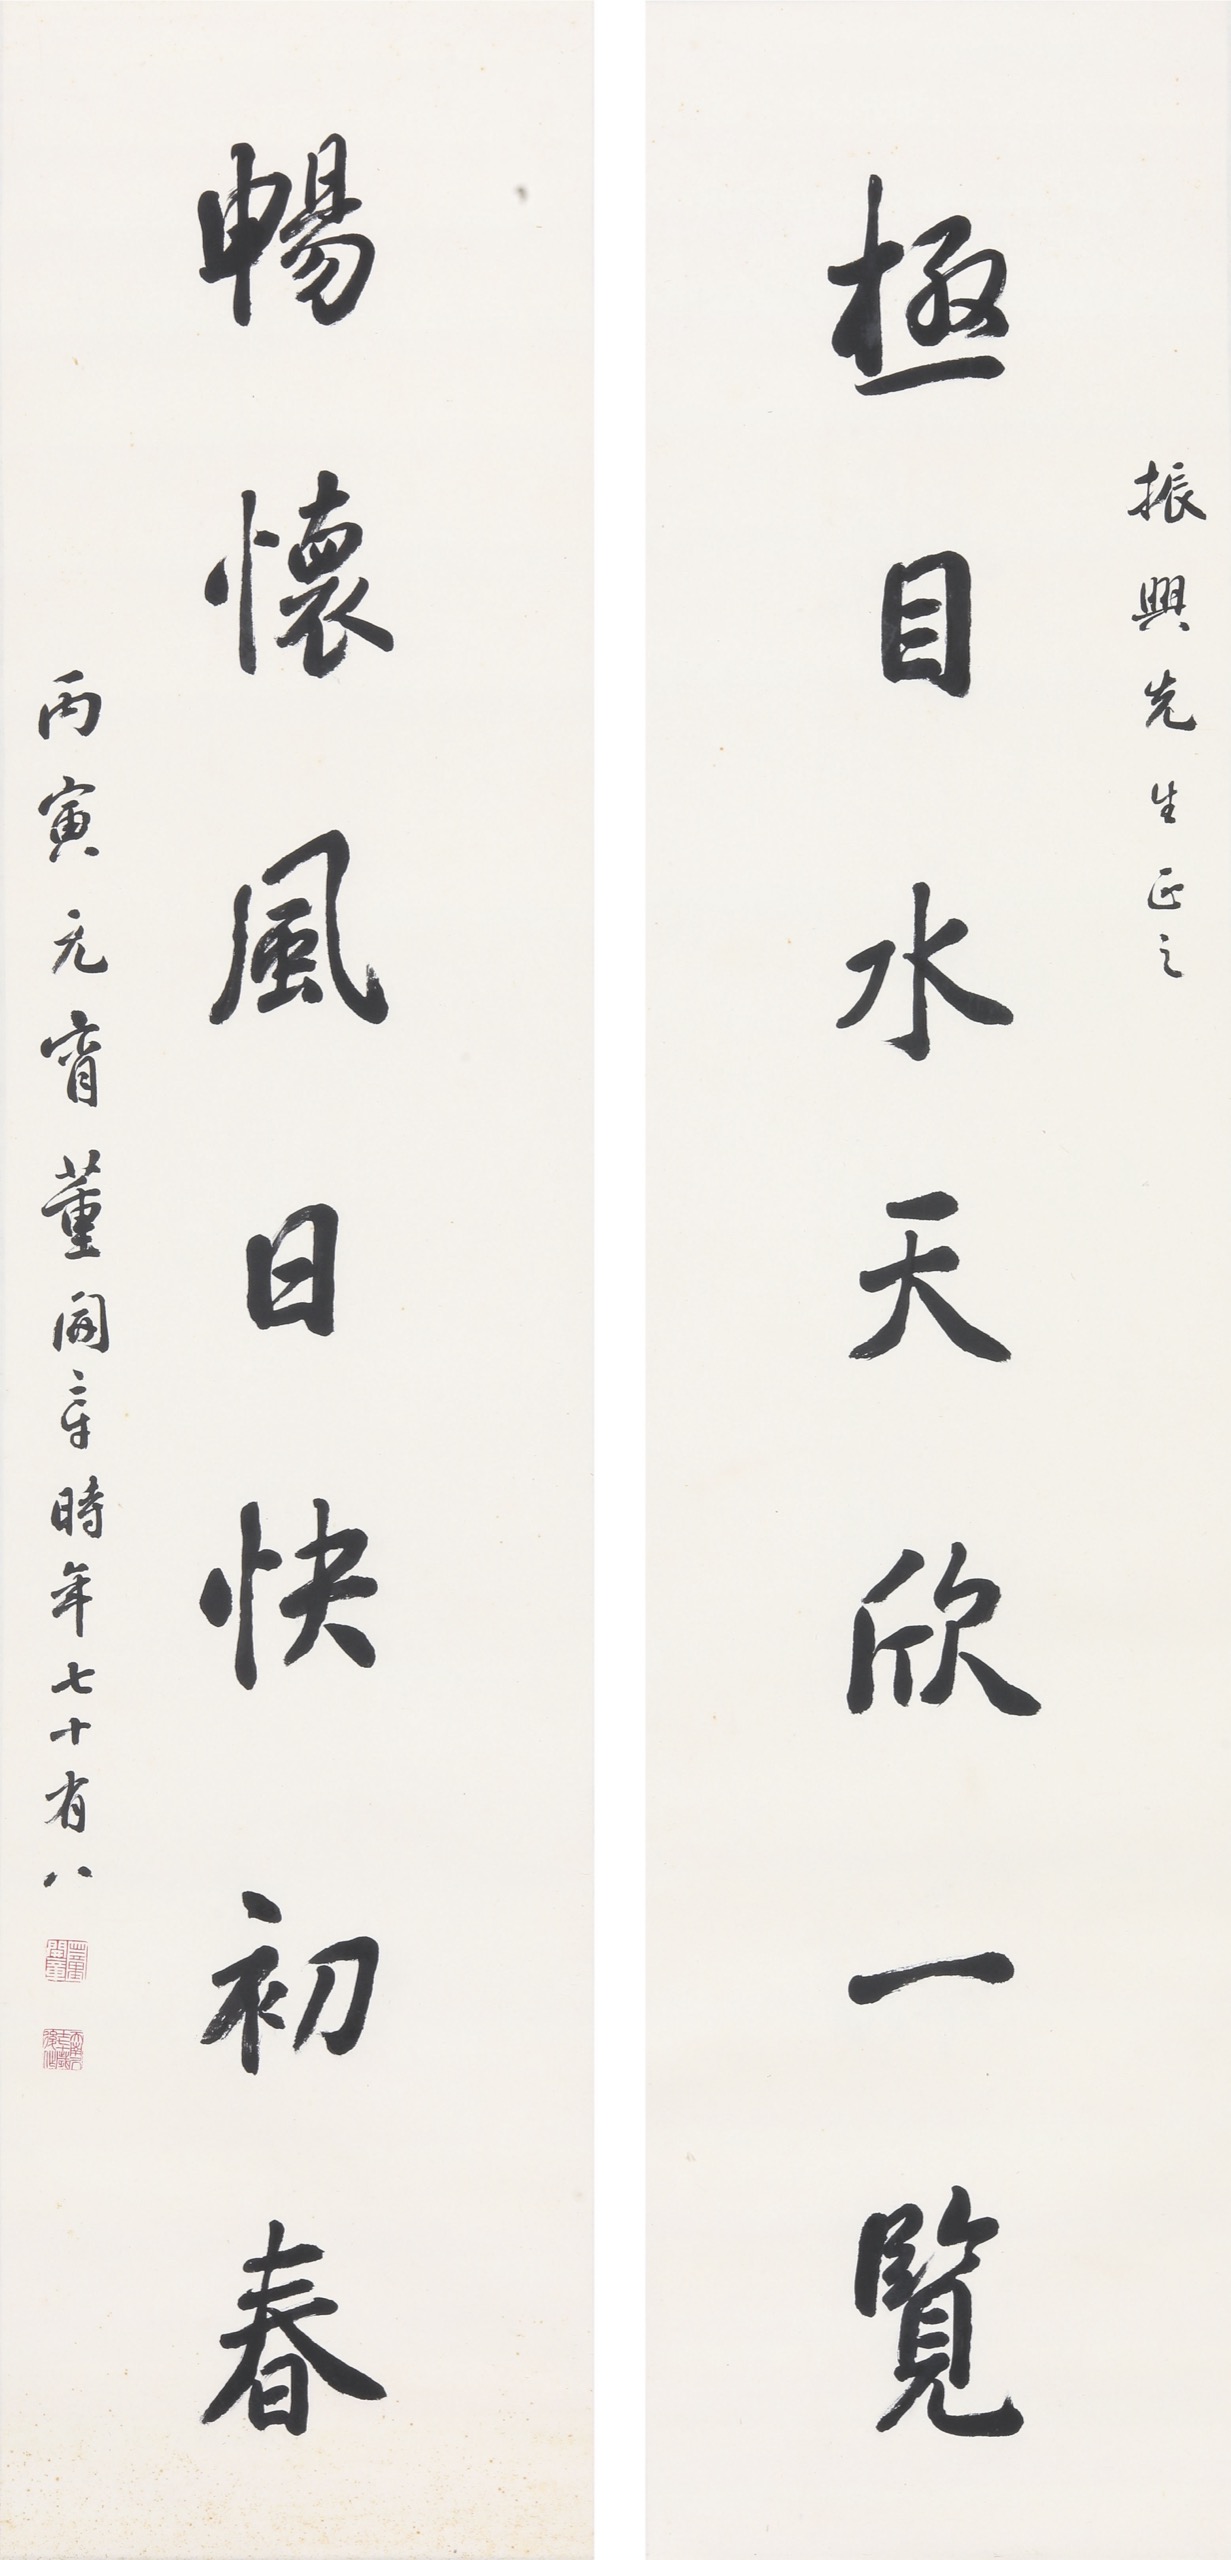 振興先生正之
極目水天欣一覽
暢懷風日快初春
丙寅元宵董開章時年七十有八